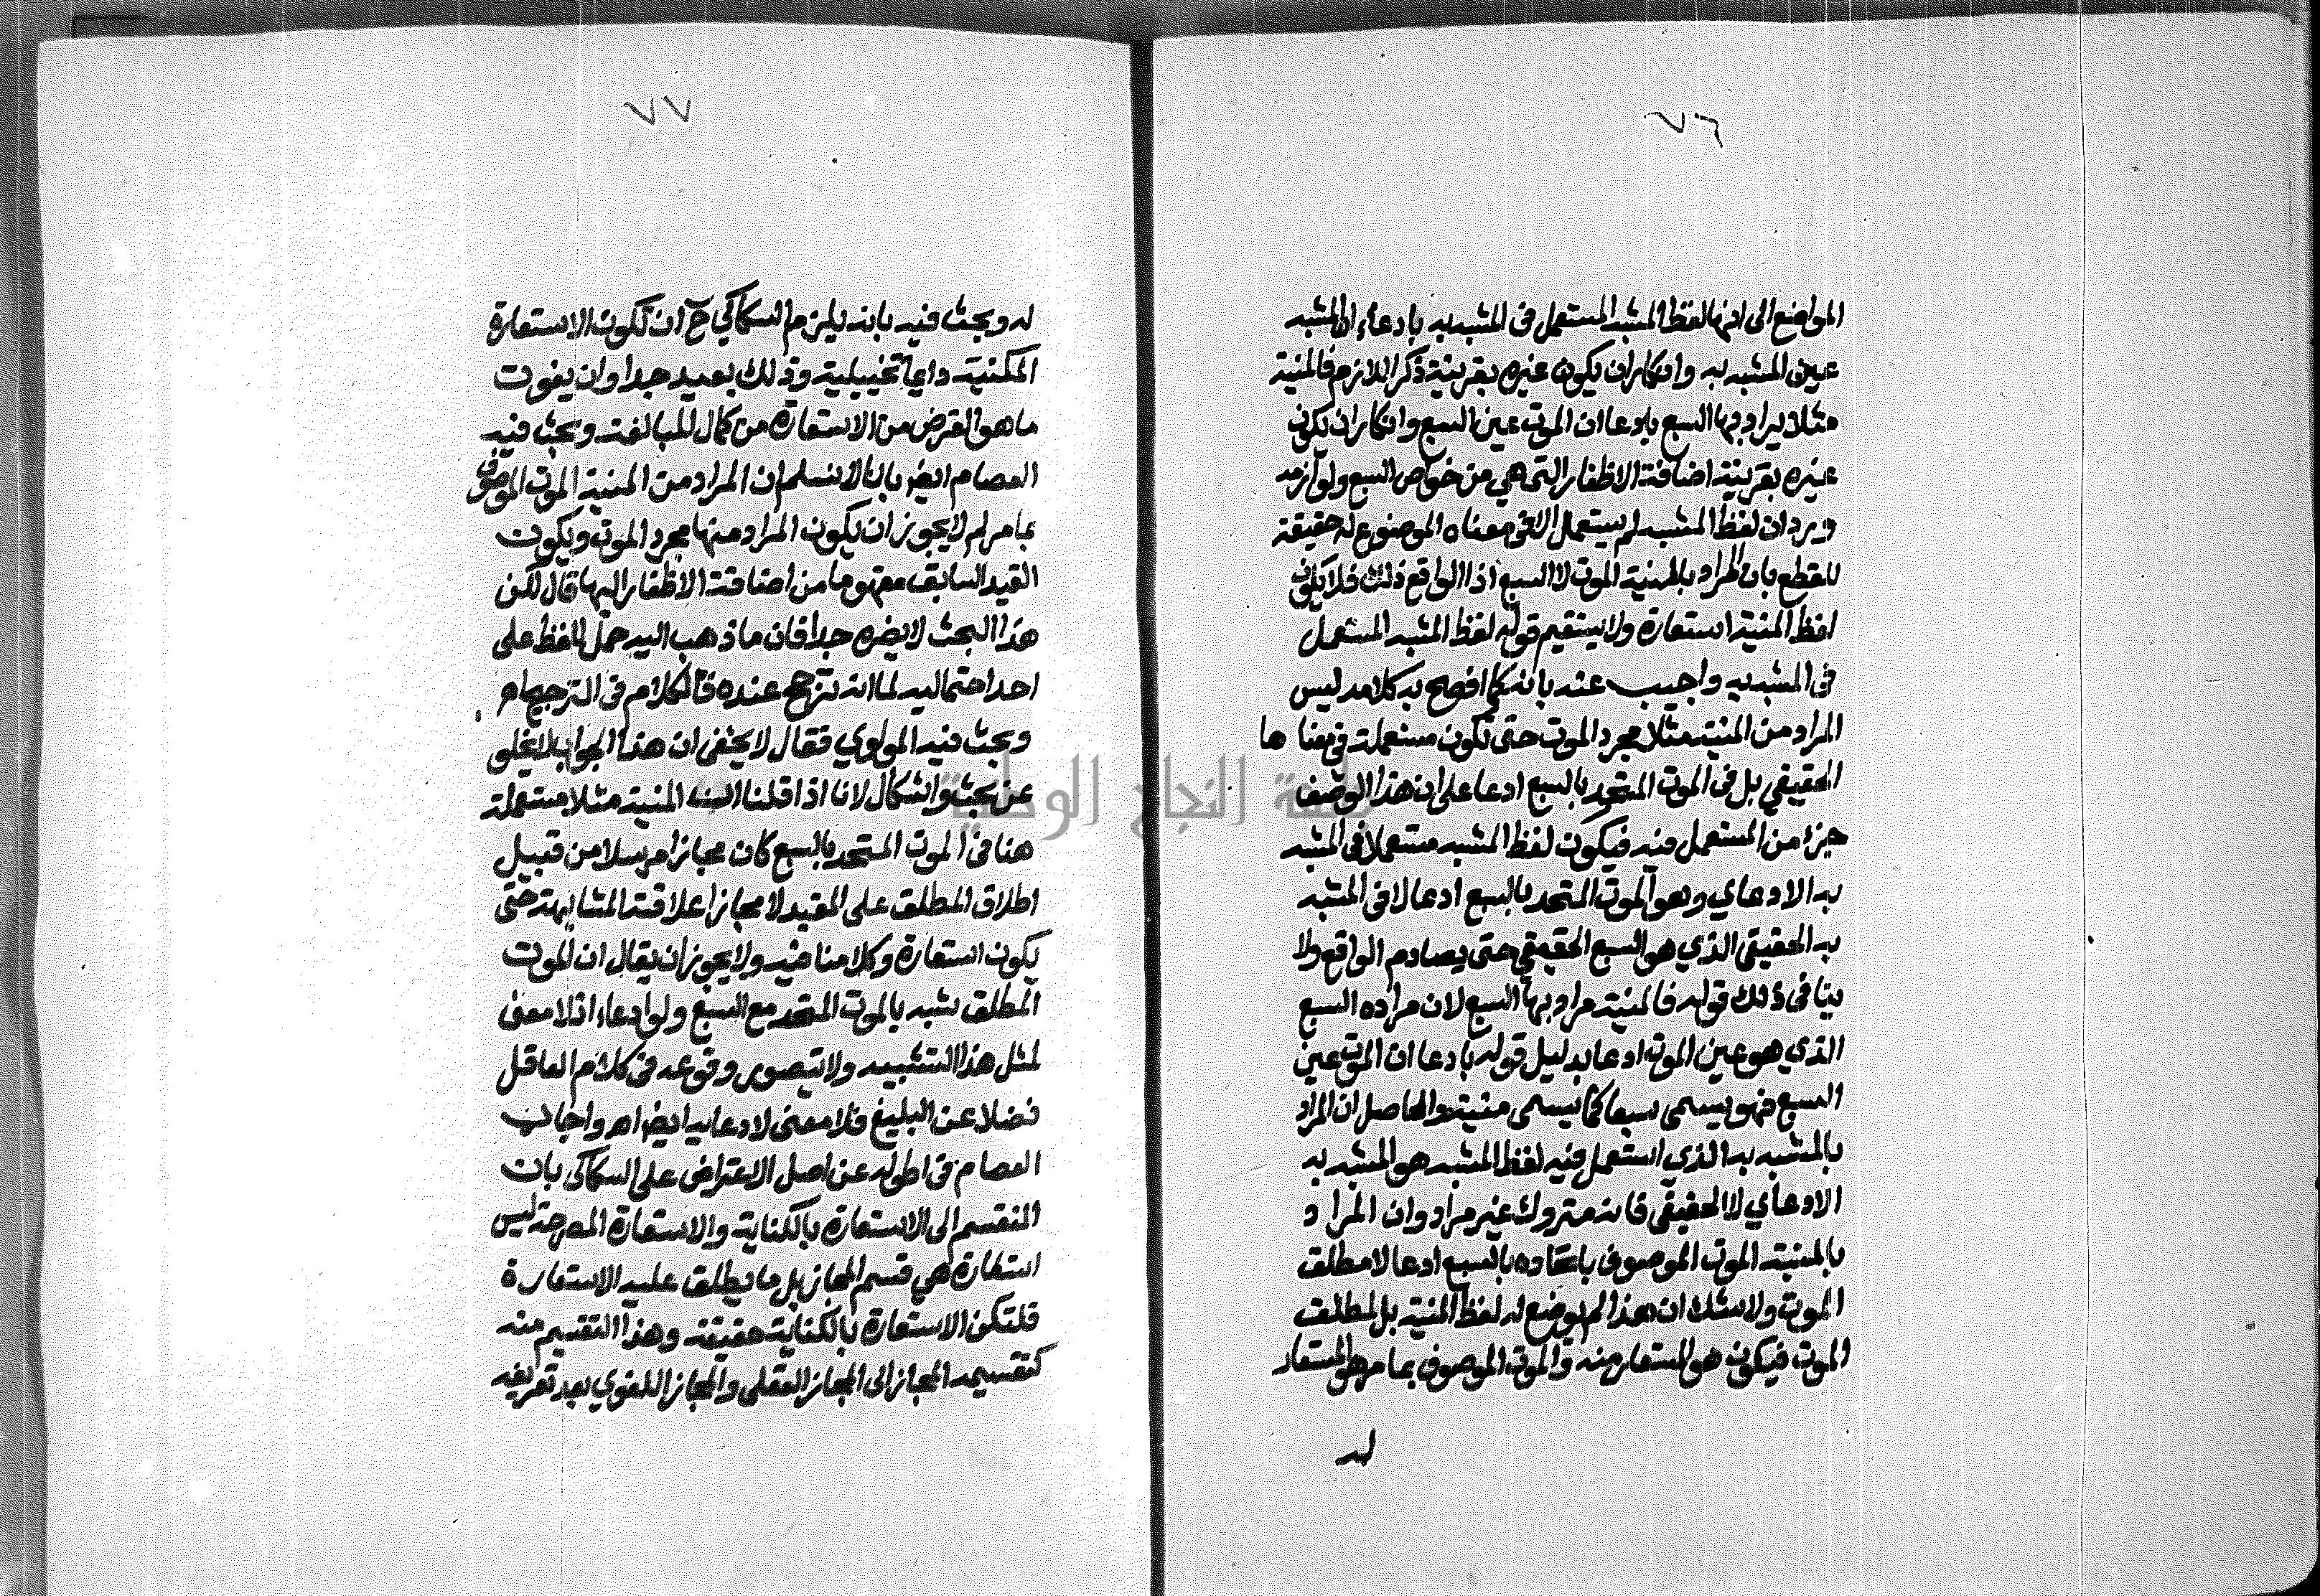 ٧٦
المواضع الى انها لفظ المشبه المستعمل فى المشبه به بادعاء ان المشبه
عين المشبه به وانكار ان يكون غيره بقرينة ذكر اللازم فالمنية
مثلا يراد بها السبع بادعا ان الموت عين السبع وانكار ان يكون
غيره بقرينة اضافة الاظفار التى هي من خواص السبع ولوازمه
ويرد ان لفظ المشبه لم يستعمل الا فى معناه الموضوع له حقيقة
للقطع بان المراد بالمنية الموت لا السبع اذ الواقع ذلك فلا يكون
لفظ المنية استعارة ولا يستقيم قوله لفظ المشبه المستعمل
فى المشبه به واجيب عنه بانه كما افصح به كلامه ليس
المراد من المنية مثلا مجرد الموت حتى تكون مستعملة فى معناها
الحقيقي بل فى الموت المتحد بالسبع ادعا على ان هذا الوصف
جزا من المستعمل فيه فيكون لفظ المشبه مستعملا فى المشبه
به الادعاي وهو الموت المتحد بالسبع ادعا لا فى المشبه
به الحقيقى الذي هو السبع الحقيقي حتى يصادم الواقع ولا
ينافى ذلك قوله فالمنية مراد بها السبع لان مراده السبع
الذي هو عين الموت ادعا بدليل قوله بادعا ان الموت عين
السبع فهو يسمى سبعا كما يسمى منية والحاصل ان المراد
بالمشبه به الذي استعمل فيه لفظ المشبه هو المشبه به
الادعاي لا الحقيقى فانه متروك غير مراد وان المراد
بالمنية الموت الموصوف باتحاده بالسبع ادعا لا مطلق
الموت ولا شك ان هذا لم يوضع له لفظ المنية بل لمطلق
الموت فيكون هو المستعار منه والموت الموصوف بما مر هو المستعار
له
٧٧
له وبحث فيه بانه يلزم السكاكي ح ان تكون الاستعارة
المكنية دايما تخييلية وذلك بعيد جدا وان يفوت
ما هو الغرض من الاستعارة من كمال المبالغة وبحث فيه
العصام ايضا بانا لا نسلم ان المراد من المنية الموت الموصوف
بما مر لم لا يجوز ان يكون المراد منها مجرد الموت ويكون
القيد السابق مفهوما من اضافة الاظفار اليها قال لكن
هذا البحث لا يضره جدا فان ما ذهب اليه حمل اللفظ على
احد احتماليه لما انه ترجح عنده فالكلام فى الترجيح اه
وبحث فيه المولوي فقال لا يخفى ان هذا الجواب لا يخلو
عن بحث واشكال لانا اذا قلنا المنية مثلا مستعملة
هنا فى الموت المتحد بالسبع كان مجازا مرسلا من قبيل
اطلاق المطلق على المقيد لا مجازا علاقته المشابهة حتى
يكون استعارة وكلامنا فيه ولا يجوز ان يقال ان الموت
المطلق شبه بالموت المتحد مع السبع ولو ادعاء اذ لا معنى
لمثل هذا التشبيه ولا يتصور وقوعه فى كلام العاقل
فضلا عن البليغ فلا معنى لادعايه ايضا اه واجاب
العصام فى اطوله عن اصل الاعتراض على السكاكى بان
المنقسم الى الاستعارة بالكناية والاستعارة المصرحة ليس
استعارة هي قسم المجاز بل ما يطلق عليه الاستعارة
فلتكن الاستعارة بالكناية حقيقة وهذا التقسيم منه
كتقسيمه المجاز الى المجاز العقلى والمجاز اللغوي بعد تعريفه